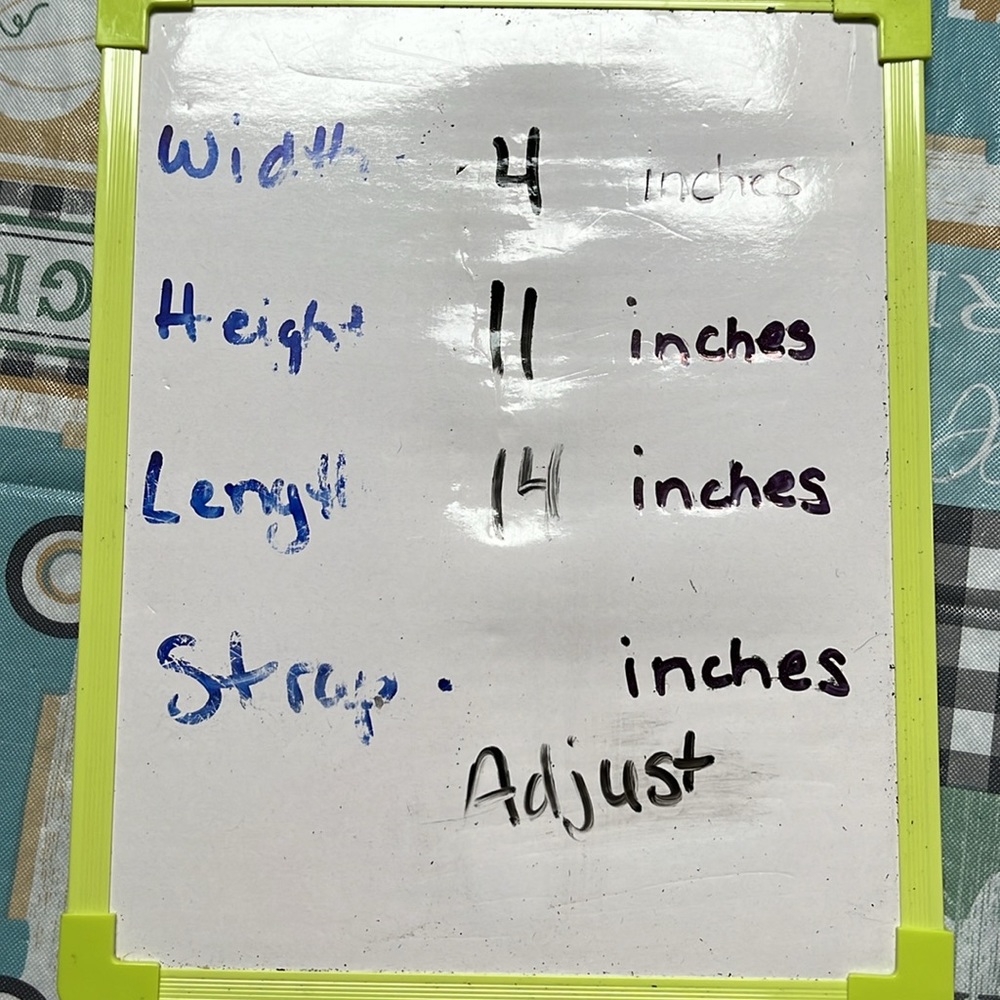 Width 4 inches
Height 11 inches
Length 14 inches
Strap. inches
Adjust